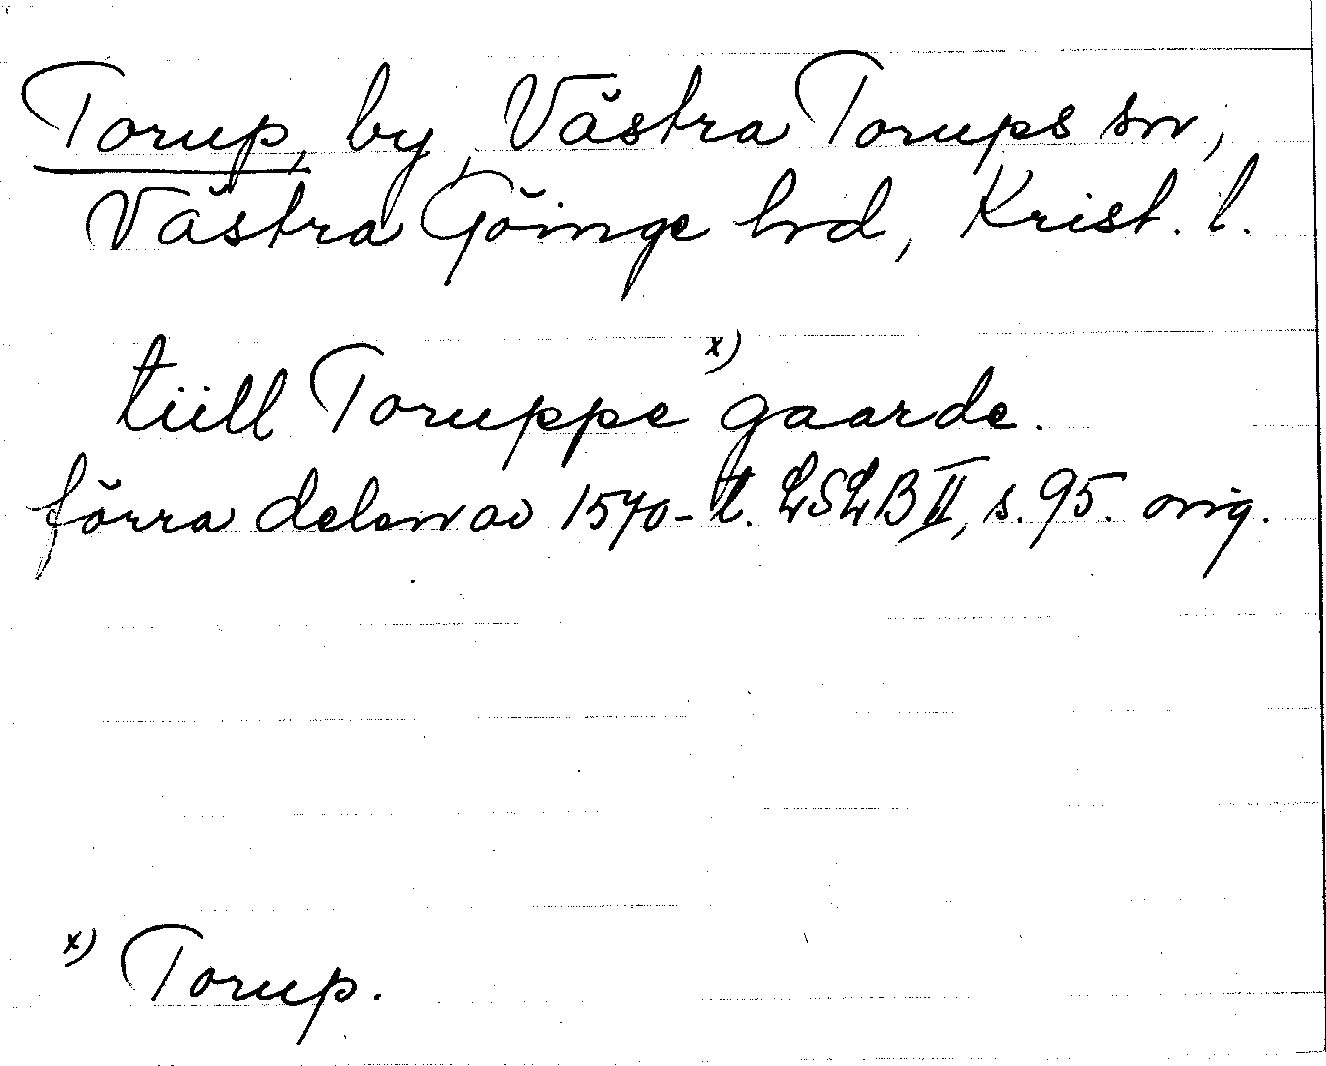 Torup, by, Västra Torups sn,
Västra Göinge hrd, Krist. l.
tiill Toruppe x) gaarde.
förra delen av 1570-t. LSLB II, s. 95. orig.
x) Torup.